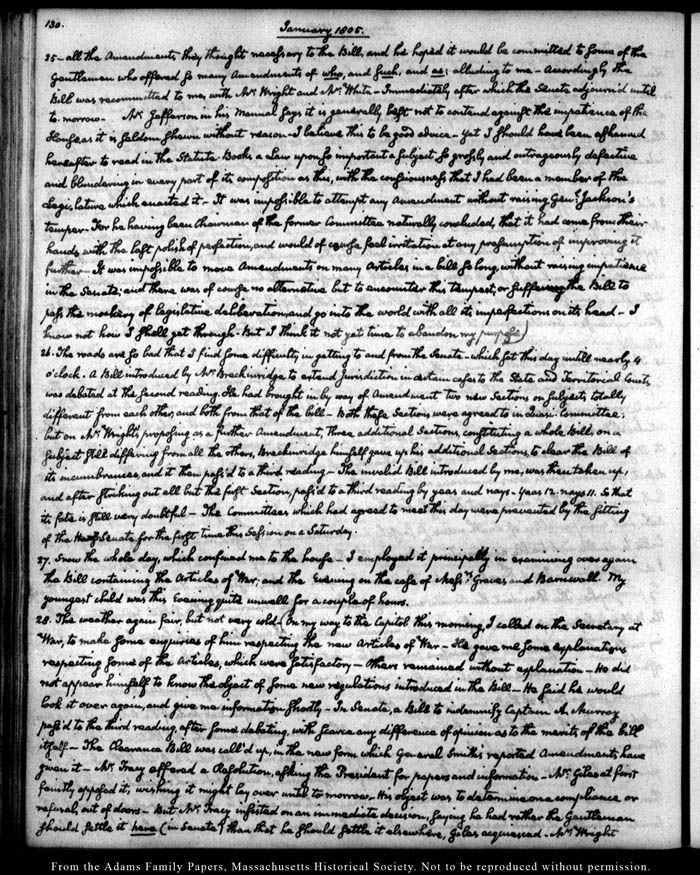 130.
January 1805.
25 - all the Amendments they thought necessary to the Bill, and he hoped it would be committed to some of the
Gentlemen who offered so many Amendments of who, and such, and as: alluding to me - Accordingly the
Bill was recommitted to me, with Mr. Wright and Mr. White - Immediately after which the Senate adjourn'd until
to-morrow. - Mr. Jefferson in his Manual says it is generally best not to contend against the impatience of the
House as it is seldom shewn without reason - I believe this to be good advice - Yet I should have been ashamed
hereafter to read in the Statute-Books a Law upon so important a subject so grossly and outrageously defective
and blundering in every part of its composition as this, with the consciousness that I had been a member of the
Legislature which enacted it - It was impossible to attempt any Amendment without raising Genl. Jackson's
temper - For he having been Chairman of the former Committee naturally concluded, that it had come from their
hands, with the last polish of perfection, and would of course feel irritation at any presumption of improving it
further - It was impossible to move Amendments on many Articles in a bill so long, without raising impatience
in the Senate; and there was of course no alternative but to encounter this tempest, or suffer the Bill to
pass the mockery of legislative deliberation, and go into the world with all its imperfections on its head - I
know not how I shall get through - But I think it not yet time to abandon my purpose
26. The roads are so bad that I find some difficulty in getting to and from the Senate - which sat this day until nearly 4
o'clock. A Bill introduced by Mr. Breckinridge to extend Jurisdiction in certain cases to the State and Territorial Courts,
was debated at the second reading. He had brought in by way of Amendment two new Sections on subjects totally
different from each other, and both from that of the bill - Both these Sections were agreed to in Quasi-Committee;
but on Mr. Wright's proposing as a further Amendment, three additional Sections, constituting a whole Bill, on a
subject still differing from all the others, Breckinridge himself gave up his additional Sections, to clear the Bill of
its incumbrances, and it then pass'd to a third reading - The invalid Bill introduced by me, was then taken up,
and after striking out all but the first Section, pass'd to a third reading by yeas and nays - Yeas 12. nays 11. So that
its fate is still very doubtful - The Committees which had agreed to meet this day were prevented by the sitting
of the Senate for the first time this Session on a Saturday.
27. Snow the whole day, which confined me to the house - I employed it principally in examining over again
the Bill containing the Articles of War; and the Evening on the case of Messrs. Graves and Barnwall. My
youngest child was this Evening quite unwell for a couple of hours.
28. The weather again fair, but not very cold. On my way to the Capitol this morning, I called on the Secretary at
War, to make some enquiries of him respecting the new Articles of War - He gave me some explanations
respecting some of the Articles, which were satisfactory - Others remained without explanation - He did
not appear himself to know the object of some new regulations introduced in the Bill - He said he would
look it over again, and give me information shortly - In Senate, a Bill to indemnify Captain A. Murray
pass'd to the third reading, after some debating, with scarce any difference of opinion as to the merits of the bill
itself - The Clearance Bill was call'd up, in the new form which General Smith's reported Amendments, have
given it - Mr. Tracy offered a Resolution, asking the President for papers and information - Mr. Giles at first
faintly opposed it, wishing it might lay over until to-morrow - His object was to determine on a compliance or
refusal, out of doors - But Mr. Tracy insisted on an immediate decision, saying he had rather the Gentleman
should settle it here (in Senate) than that he should settle it elsewhere, Giles acquiesced - Mr. Wright
From the Adams Family Papers, Massachusetts Historical Society. Not to be reproduced without permission.